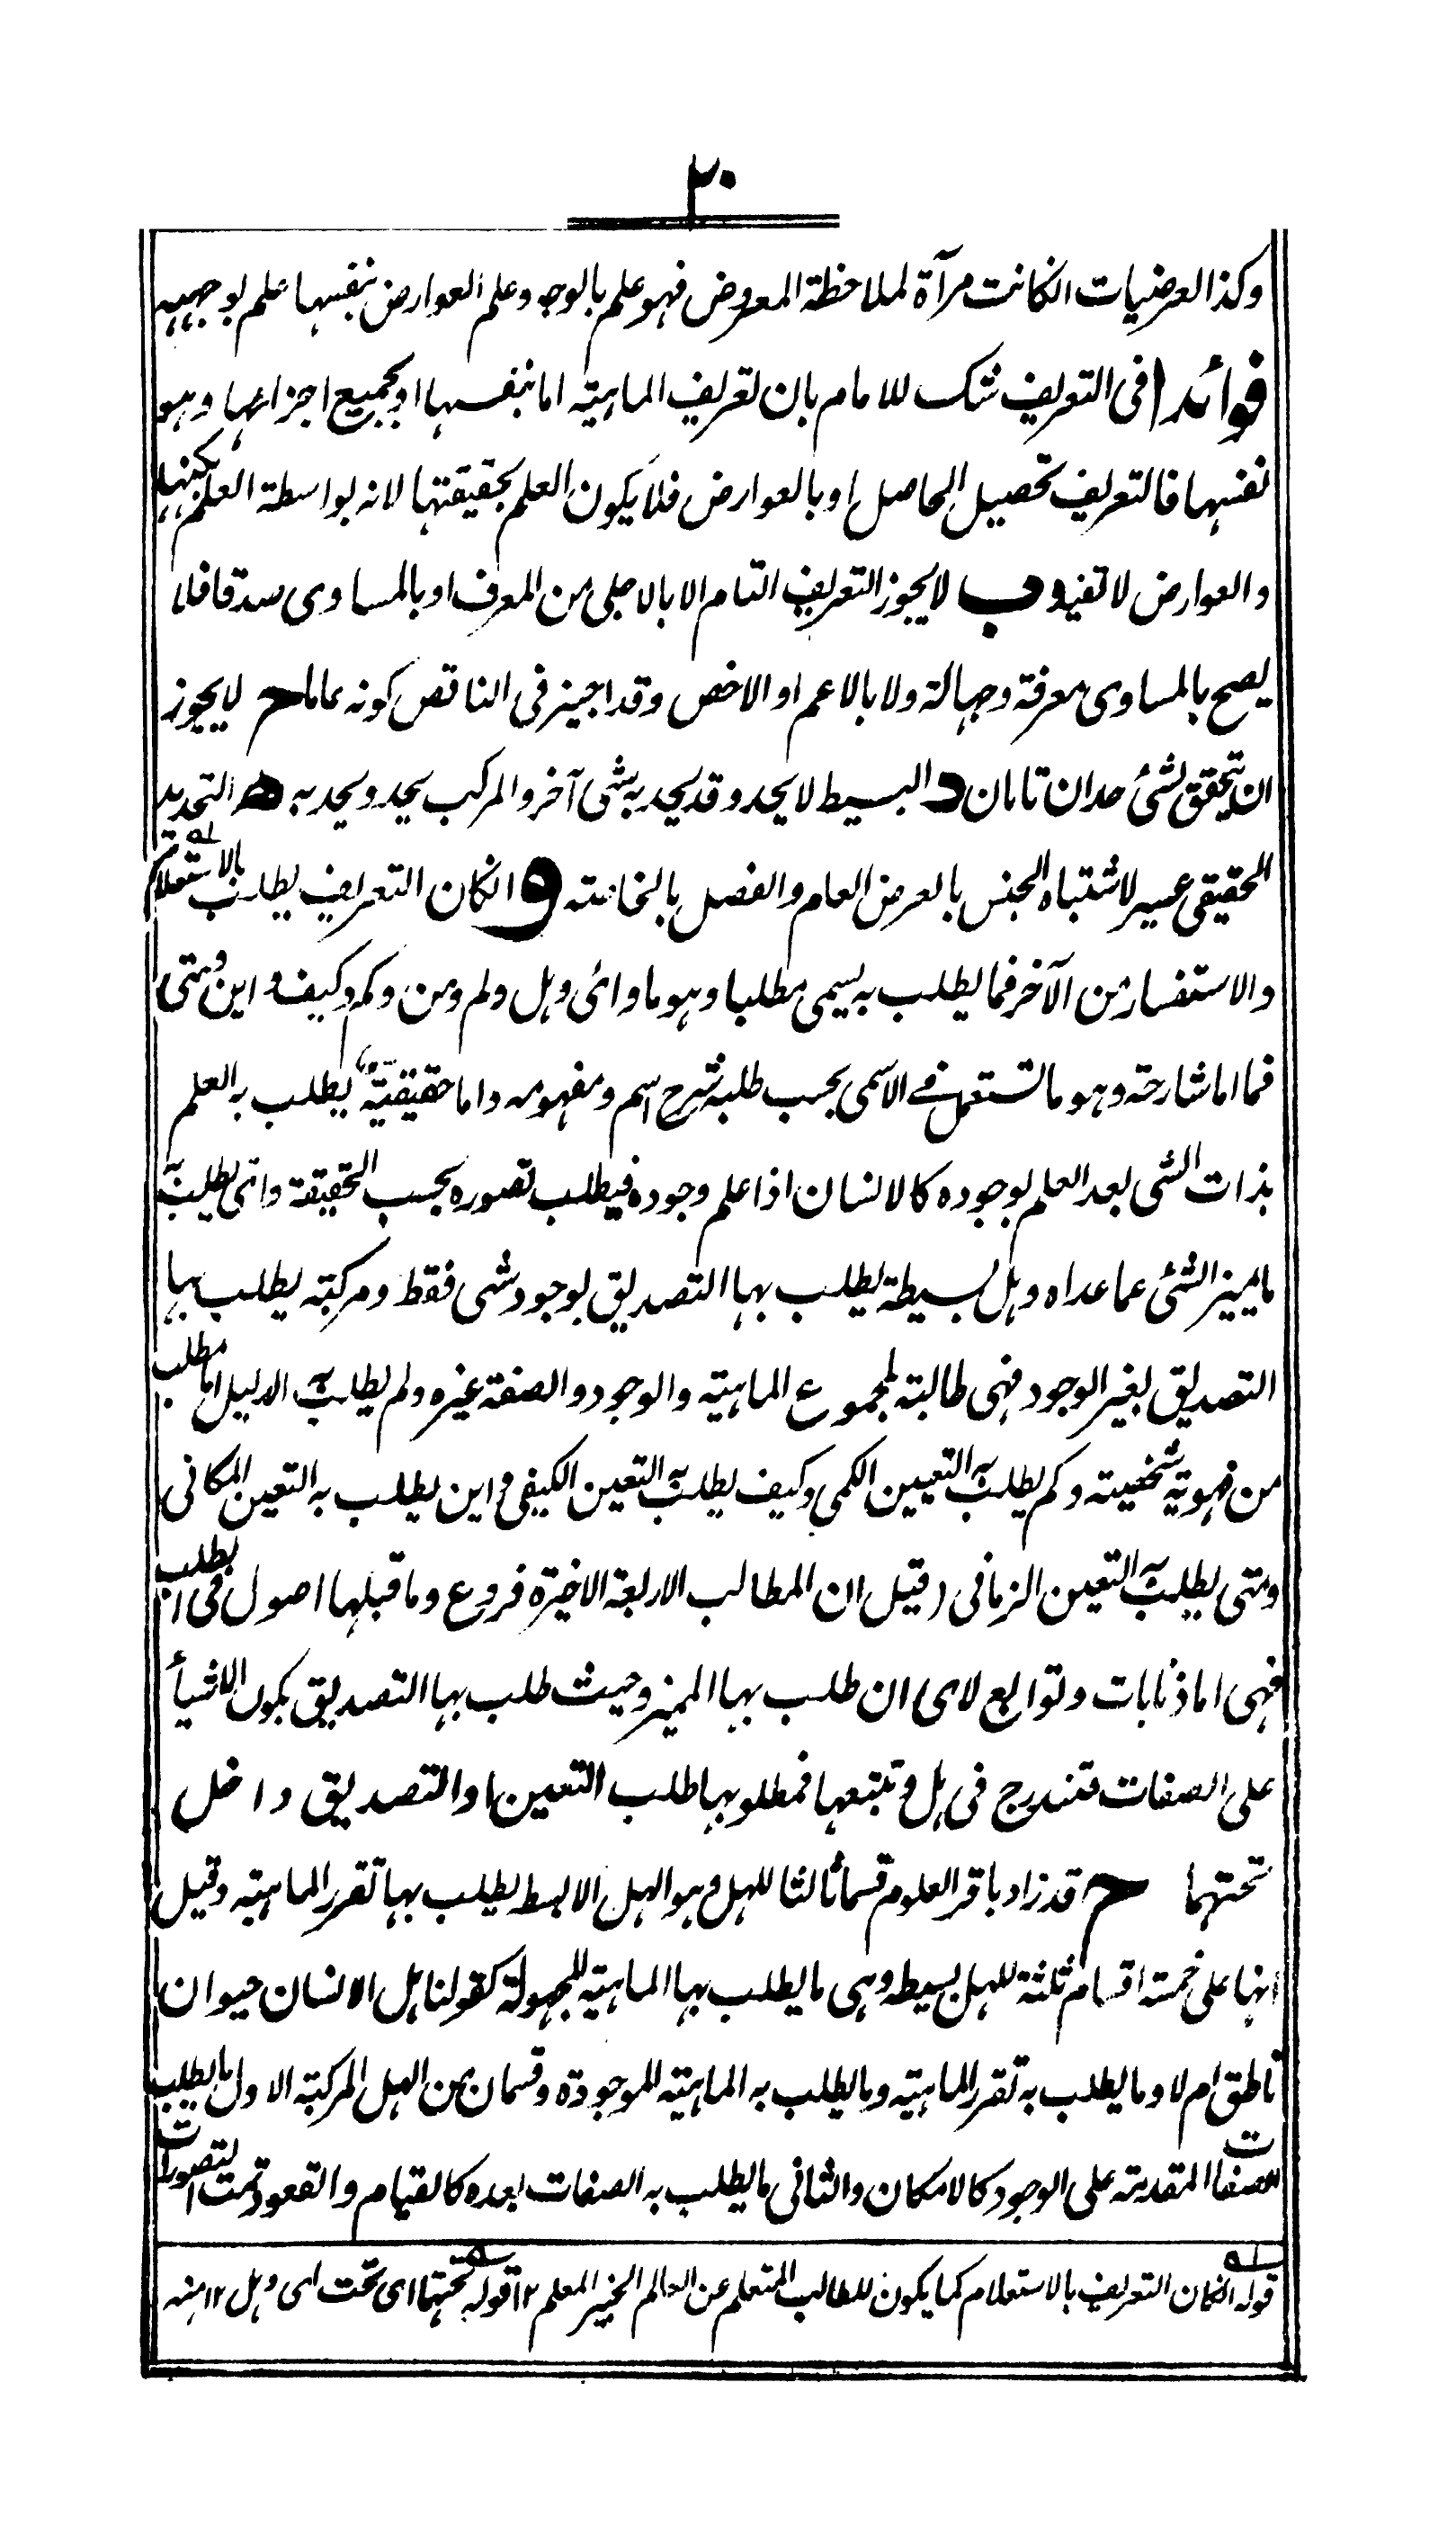 ٢٠
وكذا العرضيات انكانت مرآة لملاحظة المعروض فهو علم بالوجه وعلم العوارض بنفسها علم لوجهه
فوائد ا فى التعريف شك للامام بان تعريف الماهية اما بنفسها او بجميع اجزائها وهو
نفسها فالتعريف تحصيل الحاصل او بالعوارض فلا يكون العلم بحقيقتها لانه بواسطة العلم بكنهها
والعوارض لا تفيده ب لا يجوز التعريف التام الا بالاجلى من المعرف او بالمساوى صدقا فلا
يصح بالمساوى معرفة وجهالة ولا بالاعم او الاخص وقد اجيز فى الناقص كونه عاما ح لا يجوز
ان يتحقق لشئ حدان تامان د البسيط لا يحد وقد يحد به شى آخر والمركب يحد ويحد به ه التحديد
الحقيقى عسير لاشتباه الجنس بالعرض العام والفصل بالخاصة و انكان التعريف يطلب بالاستعلام
والاستفسار من الآخر فما يطلب به يسمى مطلبا وهو ما واى وهل ولم ومن وكم وكيف واين ومتى
فما اما شارحة وهو ما تستعمل فى الاسمى بحسب طلبه شرح اسم ومفهومه واما حقيقية يطلب به العلم
بذات الشى بعد العلم بوجوده كالانسان اذا علم وجوده فيطلب تصوره بحسب الحقيقة واى يطلب به
ما يميز الشئ عما عداه وهل بسيطة يطلب بها التصديق لوجود شى فقط ومركبة يطلب بها
التصديق لغير الوجود فهى طالبة لمجموع الماهية والوجود والصفة غيره ولم يطلب به الدليل اما مطلب
من فهوية شخصية وكم يطلب به التعيين الكمى وكيف يطلب به التعين الكيفى واين يطلب به التعين المكانى
ومتى يطلب به التعين الزمانى وقيل ان المطالب الاربعة الاخيرة فروع وما قبلها اصول فى الطلب
فهى اما ذنابات وتوابع لاى ان طلب بها المميز وحيث طلب بها التصديق بكون الاشياء
على الصفات فتندرج فى هل وتتبعها فمطلوبها طلب التعين او التصديق داخل
تحتهما ح قد زاد باقر العلوم قسما ثالثا للهل وهو الهل الابسط يطلب بها تقرر الماهية وقيل
انها على خمسة اقسام ثلثة للهل بسيطه وهى ما يطلب بها الماهية المجهولة كقولنا هل الانسان حيوان
ناطق ام لا وما يطلب به تقرر الماهية وما يطلب به الماهية الموجودة وقسمان من الهل المركبة الاول ما يطلب به
الصفات المقدمة على الوجود كالامكان والثانى ما يطلب به الصفات بعده كالقيام والقعود تمت التصورات
قوله انكان التعريف بالاستعلام كما يكون للطالب المتعلم عن العالم الخبير المعلم ١٢ قوله تحتهما اى تحت اى وهل ١٢ منه